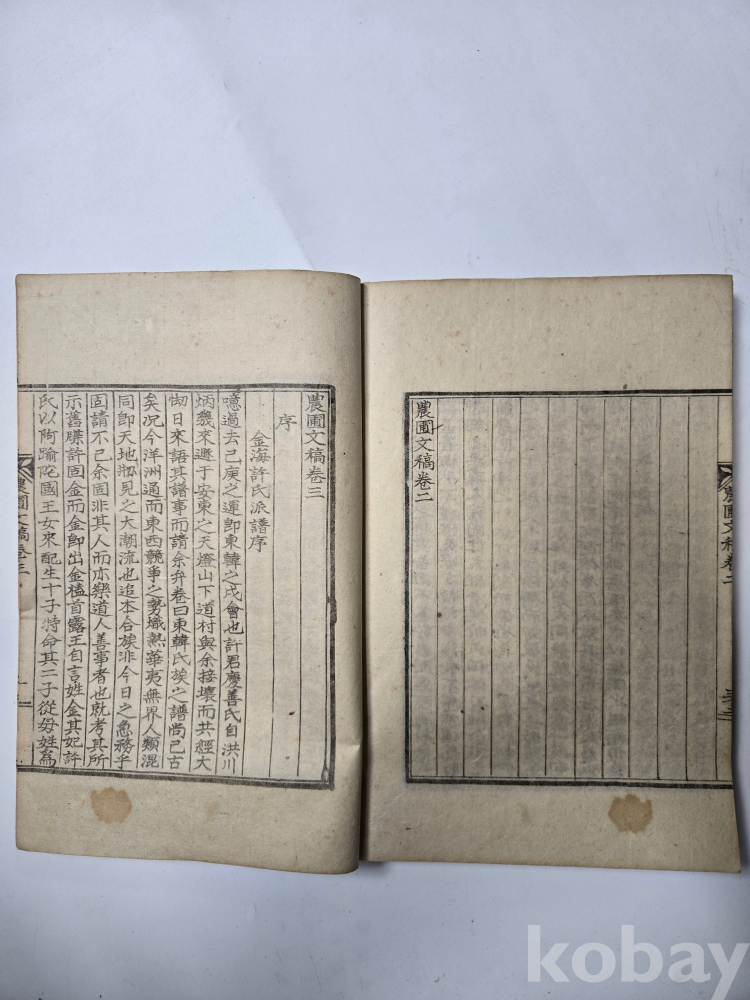 農圃文稿卷二
農圃文稿卷二
農圃文稿卷三
序
金海許氏派譜序
噫過去已庚之運卽東韓之戊會也許君慶善氏自洪川
炳幾來遯于安東之天燈山下道村與余接壤而共經大
刧日來語其譜事而請余弁卷曰東韓氏族之譜尚已古
矣况今洋洲通而東西競爭之勢熾熱華夷無界人類混
同卽天地刱見之大潮流也追本合族非今日之急務乎
固請不已余固非其人而亦樂道人善事者也就考其所
示舊牒許固金而金卽出金榼首露王自言姓金其妃許
氏以阿踰陀國王女來配生十子特命其二子從母姓爲
農圃文稿卷三
kobay